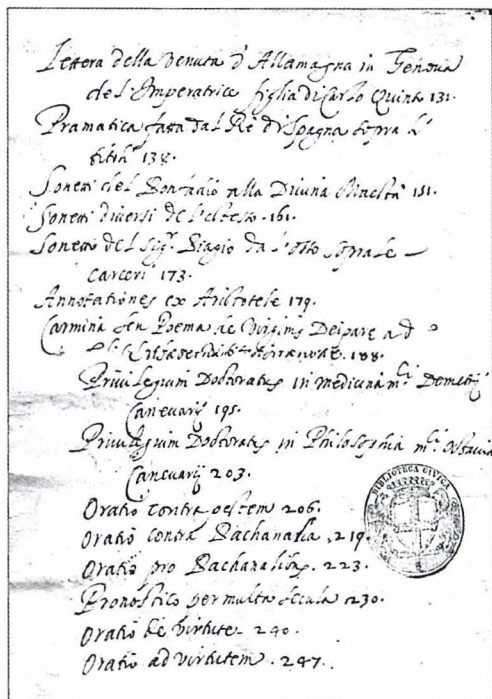 Lettera della Venuta d'Allamagna in Genova
del Imperatrice figlia di Carlo Quinto 131.
Pramatica fatta dal Re di Spagna sopra li
titiri 138.
Sonetti del Bonfadio alla Divina Maestà 151.
Sonetti diversi de l'istesso. 161.
Sonetti del sig.r Biagio da l'otto sopra le
carceri 173.
Annotationes ex Aristotele 179.
Carmina seu Poema de Virginis Deipare ad
188.
Privilegium Doctoratus in medicina m.ci Demetrij
Canevarij 195.
Privilegium Doctoratus in Philosophia m.ci Octavij
Canevarij 203.
Oratio contra 206.
Oratio contra Bachanalia. 219.
Oratio pro Bachanalibus. 223.
Pronostico per multa secula 230.
Oratio de virtute 240.
Oratio ad virtutem. 247.
BIBLIOTECA CIVICA